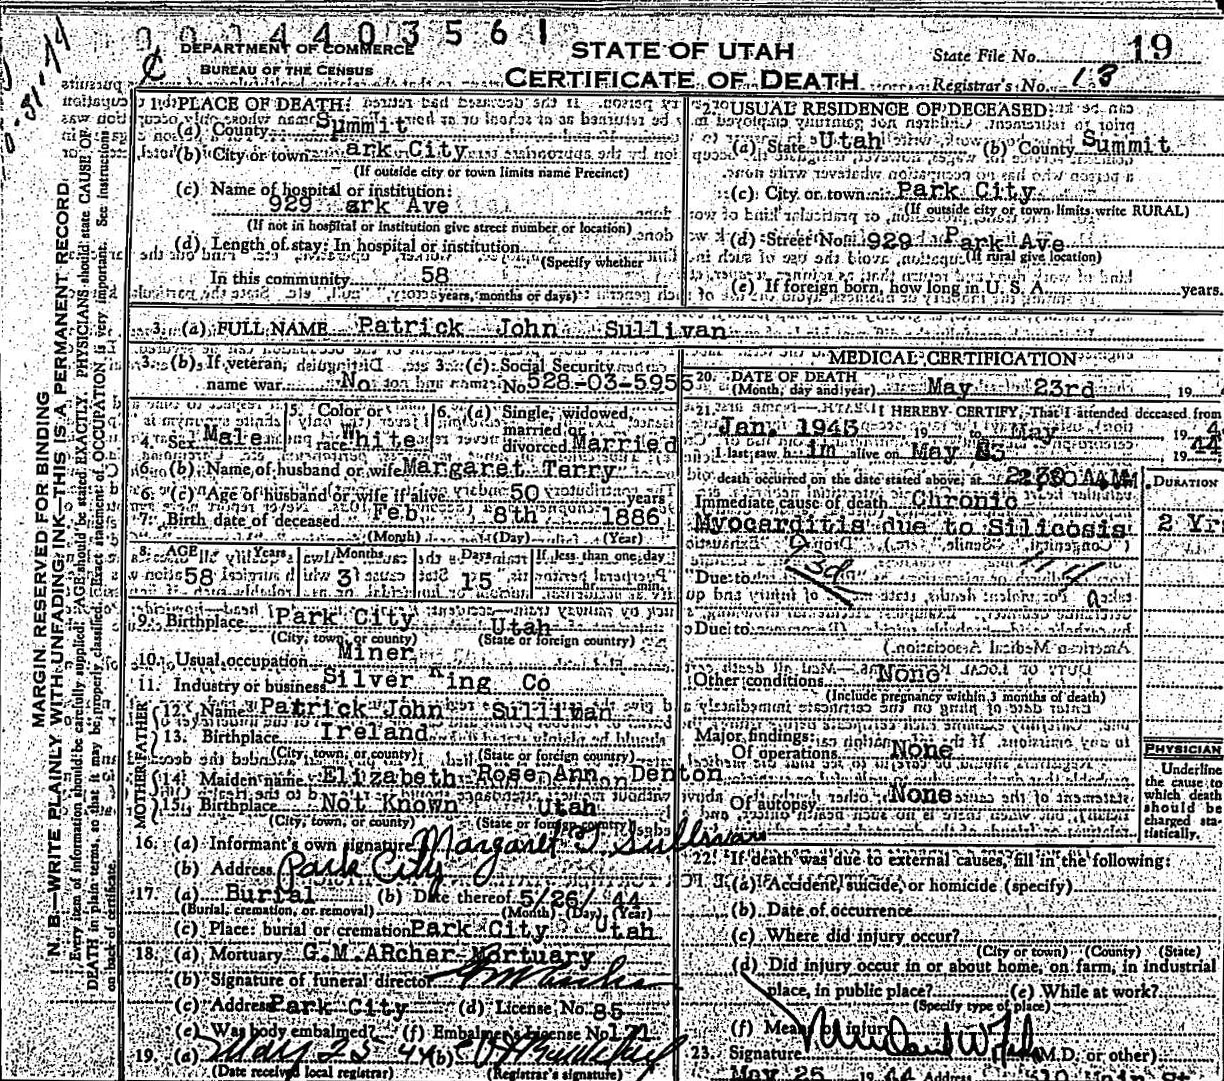 004403561
DEPARTMENT OF COMMERCE
BUREAU OF THE CENSUS
STATE OF UTAH
CERTIFICATE OF DEATH
State File No. 19
Registrar's No. 18
MARGIN RESERVED FOR BINDING
N. B.—WRITE PLAINLY WITH UNFADING INK—THIS IS A PERMANENT RECORD.
Every item of information should be carefully supplied. AGE should be stated EXACTLY. PHYSICIANS should state CAUSE OF
DEATH in plain terms, so that it may be properly classified. Exact statement of OCCUPATION is very important. See instructions
on back of certificate.
1. PLACE OF DEATH:
(a) County Summit
(b) City or town Park City
(If outside city or town limits name Precinct)
(c) Name of hospital or institution:
929 ark Ave
(If not in hospital or institution give street number or location)
(d) Length of stay: In hospital or institution
(Specify whether
In this community 58
years, months or days)
2. USUAL RESIDENCE OF DECEASED:
(a) State Utah (b) County Summit
(c) City or town Park City
(If outside city or town limits write RURAL)
(d) Street No. 929 Park Ave
(If rural give location)
(e) If foreign born, how long in U. S. A. years.
3. (a) FULL NAME Patrick John Sullivan
3. (b) If veteran, name war No 3. (c) Social Security No. 528-03-5956
4. Sex Male 5. Color or race White 6. (a) Single, widowed, married or divorced Married
6. (b) Name of husband or wife Margaret Terry
6. (c) Age of husband or wife if alive 50 years
7. Birth date of deceased Feb 8th 1886
(Month) (Day) (Year)
8. AGE Years Months Days If less than one day
58 3 15 min.
9. Birthplace Park City Utah
(City, town, or county) (State or foreign country)
10. Usual occupation Miner
11. Industry or business Silver King Co
FATHER
12. Name Patrick John Sullivan
13. Birthplace Ireland
(City, town, or county) (State or foreign country)
MOTHER
14. Maiden name Elizabeth Rose Ann Denton
15. Birthplace Not Known Utah
(City, town, or county) (State or foreign country)
16. (a) Informant's own signature Margaret T. Sullivan
(b) Address Park City
17. (a) Burial (b) Date thereof 5/26/ 44
(Burial, cremation, or removal) (Month) (Day) (Year)
(c) Place: burial or cremation Park City Utah
18. (a) Mortuary G.M.ARcher Mortuary
(b) Signature of funeral director
(c) Address Park City (d) License No. 85
(e) Was body embalmed? (f) Embalmer's License No. 171
19. (a) May 25 44 (b)
(Date received local registrar) (Registrar's signature)
MEDICAL CERTIFICATION
20. DATE OF DEATH
(Month, day and year) May 23rd, 19
21. I HEREBY CERTIFY, That I attended deceased from
Jan. 1943 19 to May 19 4
I last saw him alive on May 23 19 44
death occurred on the date stated above, at 2:30 A.M. DURATION
Immediate cause of death Chronic
Myocarditis due to Silicosis 2 Yr
Due to 93d
Due to
Other conditions None
(Include pregnancy within 3 months of death)
Major findings:
Of operations None
Of autopsy None
PHYSICIAN
Underline
the cause to
which death
should be
charged sta-
tistically.
22. If death was due to external causes, fill in the following:
(a) Accident, suicide, or homicide (specify)
(b) Date of occurrence
(c) Where did injury occur?
(City or town) (County) (State)
(d) Did injury occur in or about home, on farm, in industrial
place, in public place? (e) While at work?
(Specify type of place)
(f) Means of injury
23. Signature (M.D. or other)
May 25 19 44 Address 510 Main St